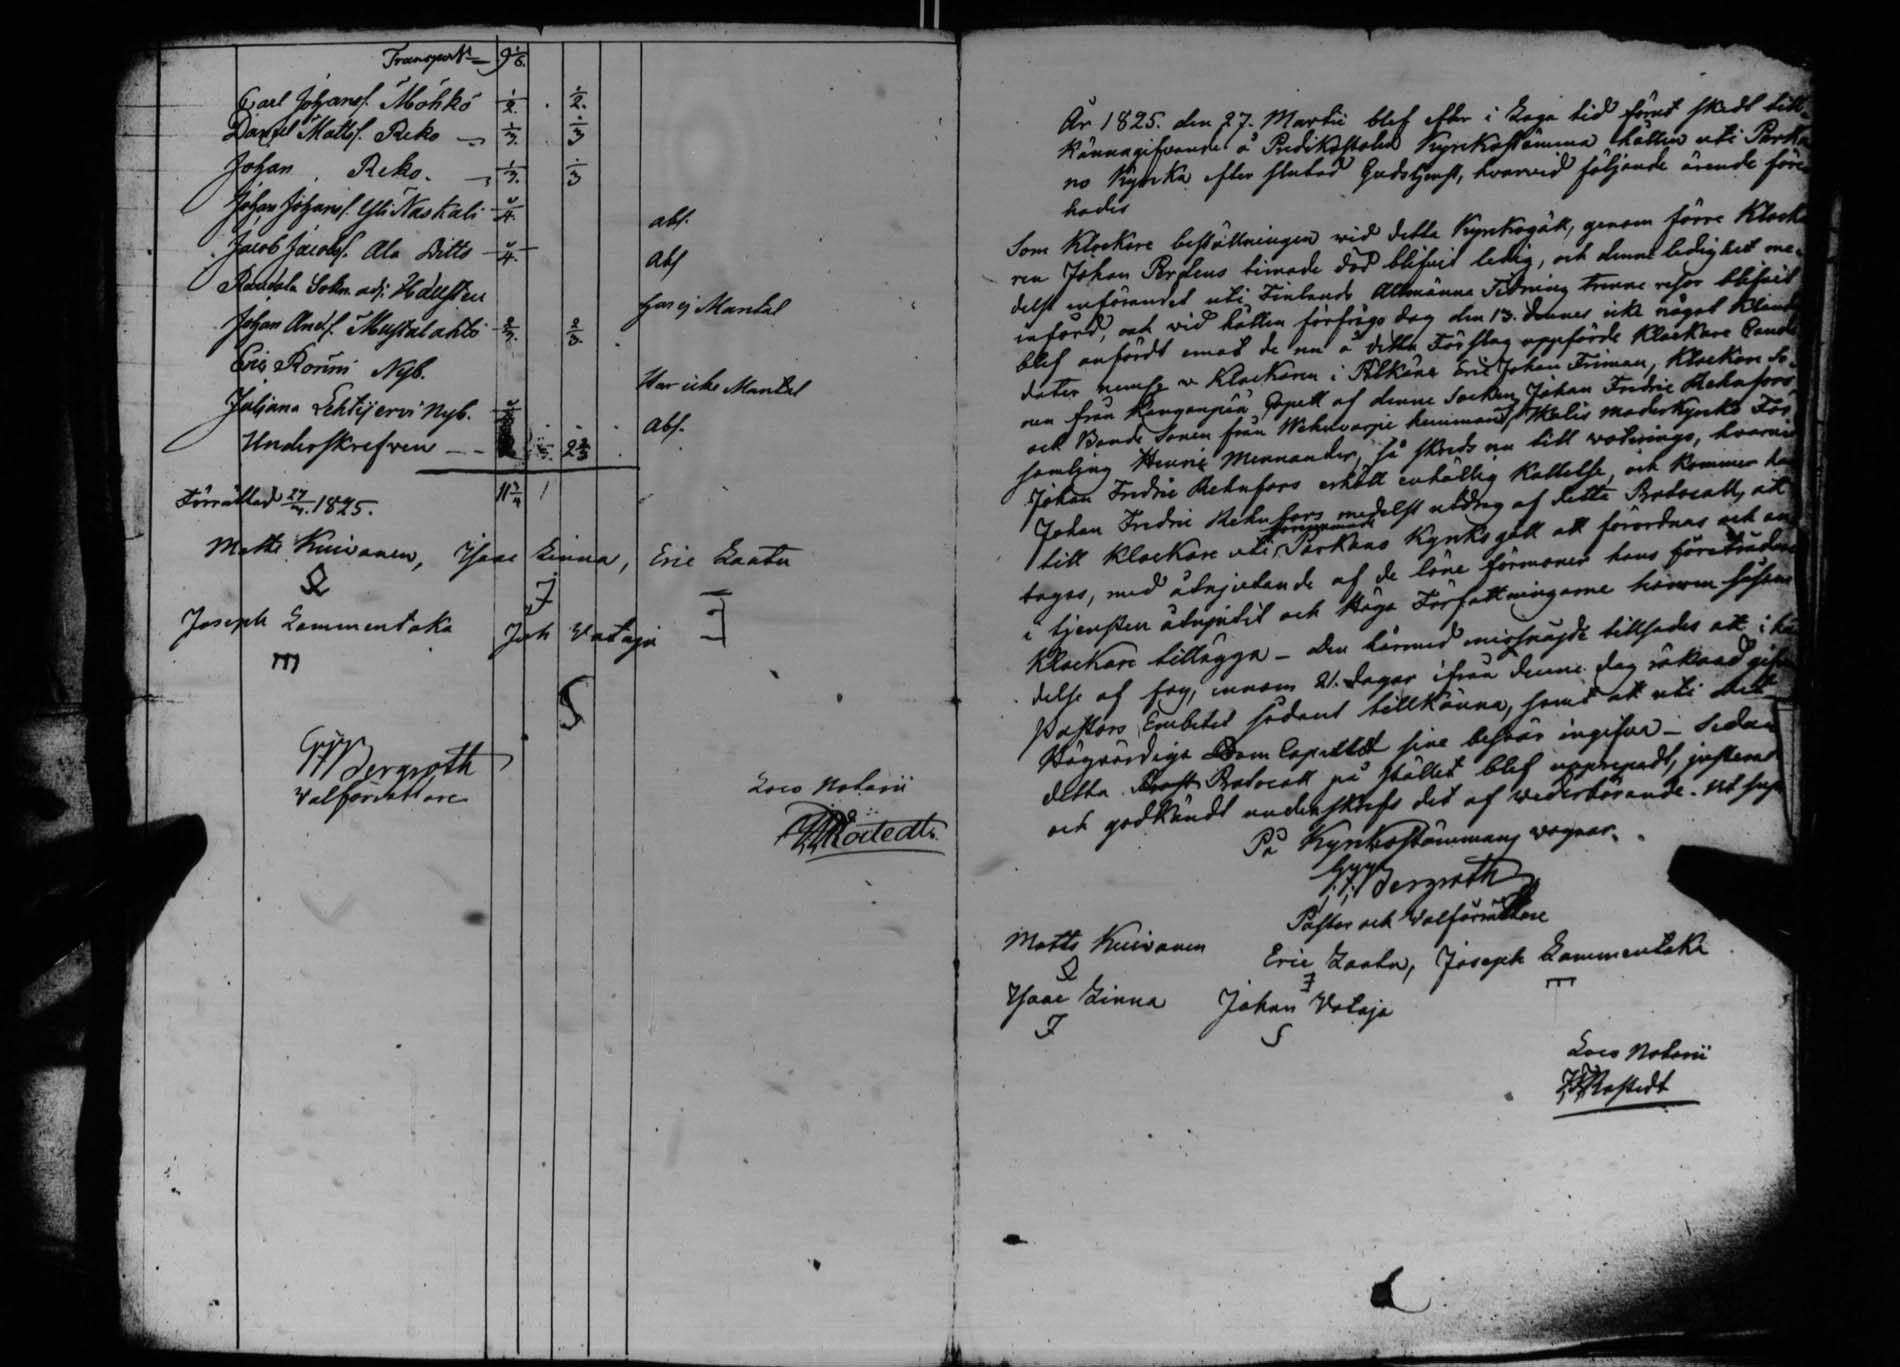 Transport 9 1/6.
Carl Johansf. Möhkö 1/2. 1/2.
Daniel Mattsf. Reko 1/3. 1/3
Johan Reko. 1/3. 1/3
Johan Johansf. Yli Naskali 1/4. abs.
Jacob Jacobsf. Ala Ditto 1/4. abs
Hallsten har ej Mantal
Johan Andsf. Mustalahti 2/3. 2/3.
Eric Rouni Nyb. Har icke Mantal
Juljana Lehtijervi Nyb. abs.
Underskrefven 2 2/3
Förrättad 27/3. 1825. 11 3/4
Matts Kuivanen, Isaac Linna, Eric Laatu
Joseph Lammentaka Joh Vataja
Bergroth
Valförrättare
Loco Notarii
År 1825. den 27. Martii blef efter i Laga tid förut skedt till-
kännagifvande å Predikostolen Kyrkostämma hållen uti Parka
no Kyrka efter slutad Gudstjenst, hvarvid följande ärende före
hades
Som Klockare beställningen vid detta Kyrkogäll, genom förre Klocka
ren Johan timade död blifvit ledig, och denna ledighet me-
delst införandet uti Finlands Allmänna Tidning trenne resor blifvit
införd, och vid hållen förfrågs dag den 13. dennes icke något Klander
blef anfördt emot de nu å detta Förslag uppförde Klockare Candi
dater v. Klockaren i Pälkäne Eric Johan Friman, Klockare So-
nen från Kangonpää Capell af denne Socken Johan Fredric Rehnfors
och Bonde Sonen från hemmand, Ikalis moderkyrko För
samling Henric Mennander, så skreds nu till voterings, hvarvid
Johan Fredric Rehnfors erhöll enhällig Kallelse, och kommer da
Johan Fredric Rehnfors medelst utdrag af detta Protocoll, att
till Klockare uti Parkano Kyrkogäll att förordnas och an
tagas, med åtnjutande af de löne förmoner hans företrädare
i tjensten åtnjutit och Höga Författningarne honom såsom
Klockare tillägga – den härmed missnöjde tillsades att i hä
delse af sag, innom 21. dagar ifrån denne dag räknad gifva
Pastors Embetet sådant tillkänna, samt att uti det
Högvördiga Dom Capitlet sine besvär ingifva – Sedan
detta Protocoll på stället blef upprepadt, justerat
och godkändt underskrefs det af vederbörande. Ut supra
På Kyrkostämmans vägnar.
Bergroth
Pastor och Valförrättare
Matts Kuivanen Eric Laatu, Joseph Lammentaka
Isaac Linna Johan Vataja
Loco Notarii